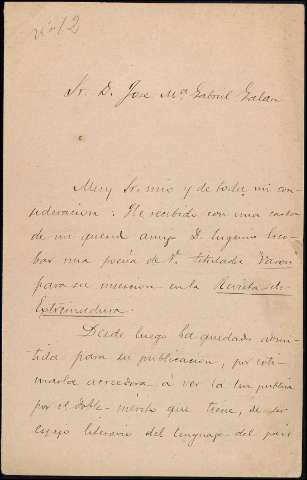 nº 12
Sr. D. José Mª Gabriel Galan
Muy Sr. mio y de toda mi con-
sideracion: He recibido con una carta
de mi querid amigo D. Eugenio Esco-
bar una poesia de V. titulada "Varon"
para su insercion en la Revista de
Extremadura.
Desde luego ha quedado admi-
tida para su publicacion, por esti-
marla acreedora á ver la luz publica
por el doble mérito que tiene, de ser
espejo literario del lenguage del pais